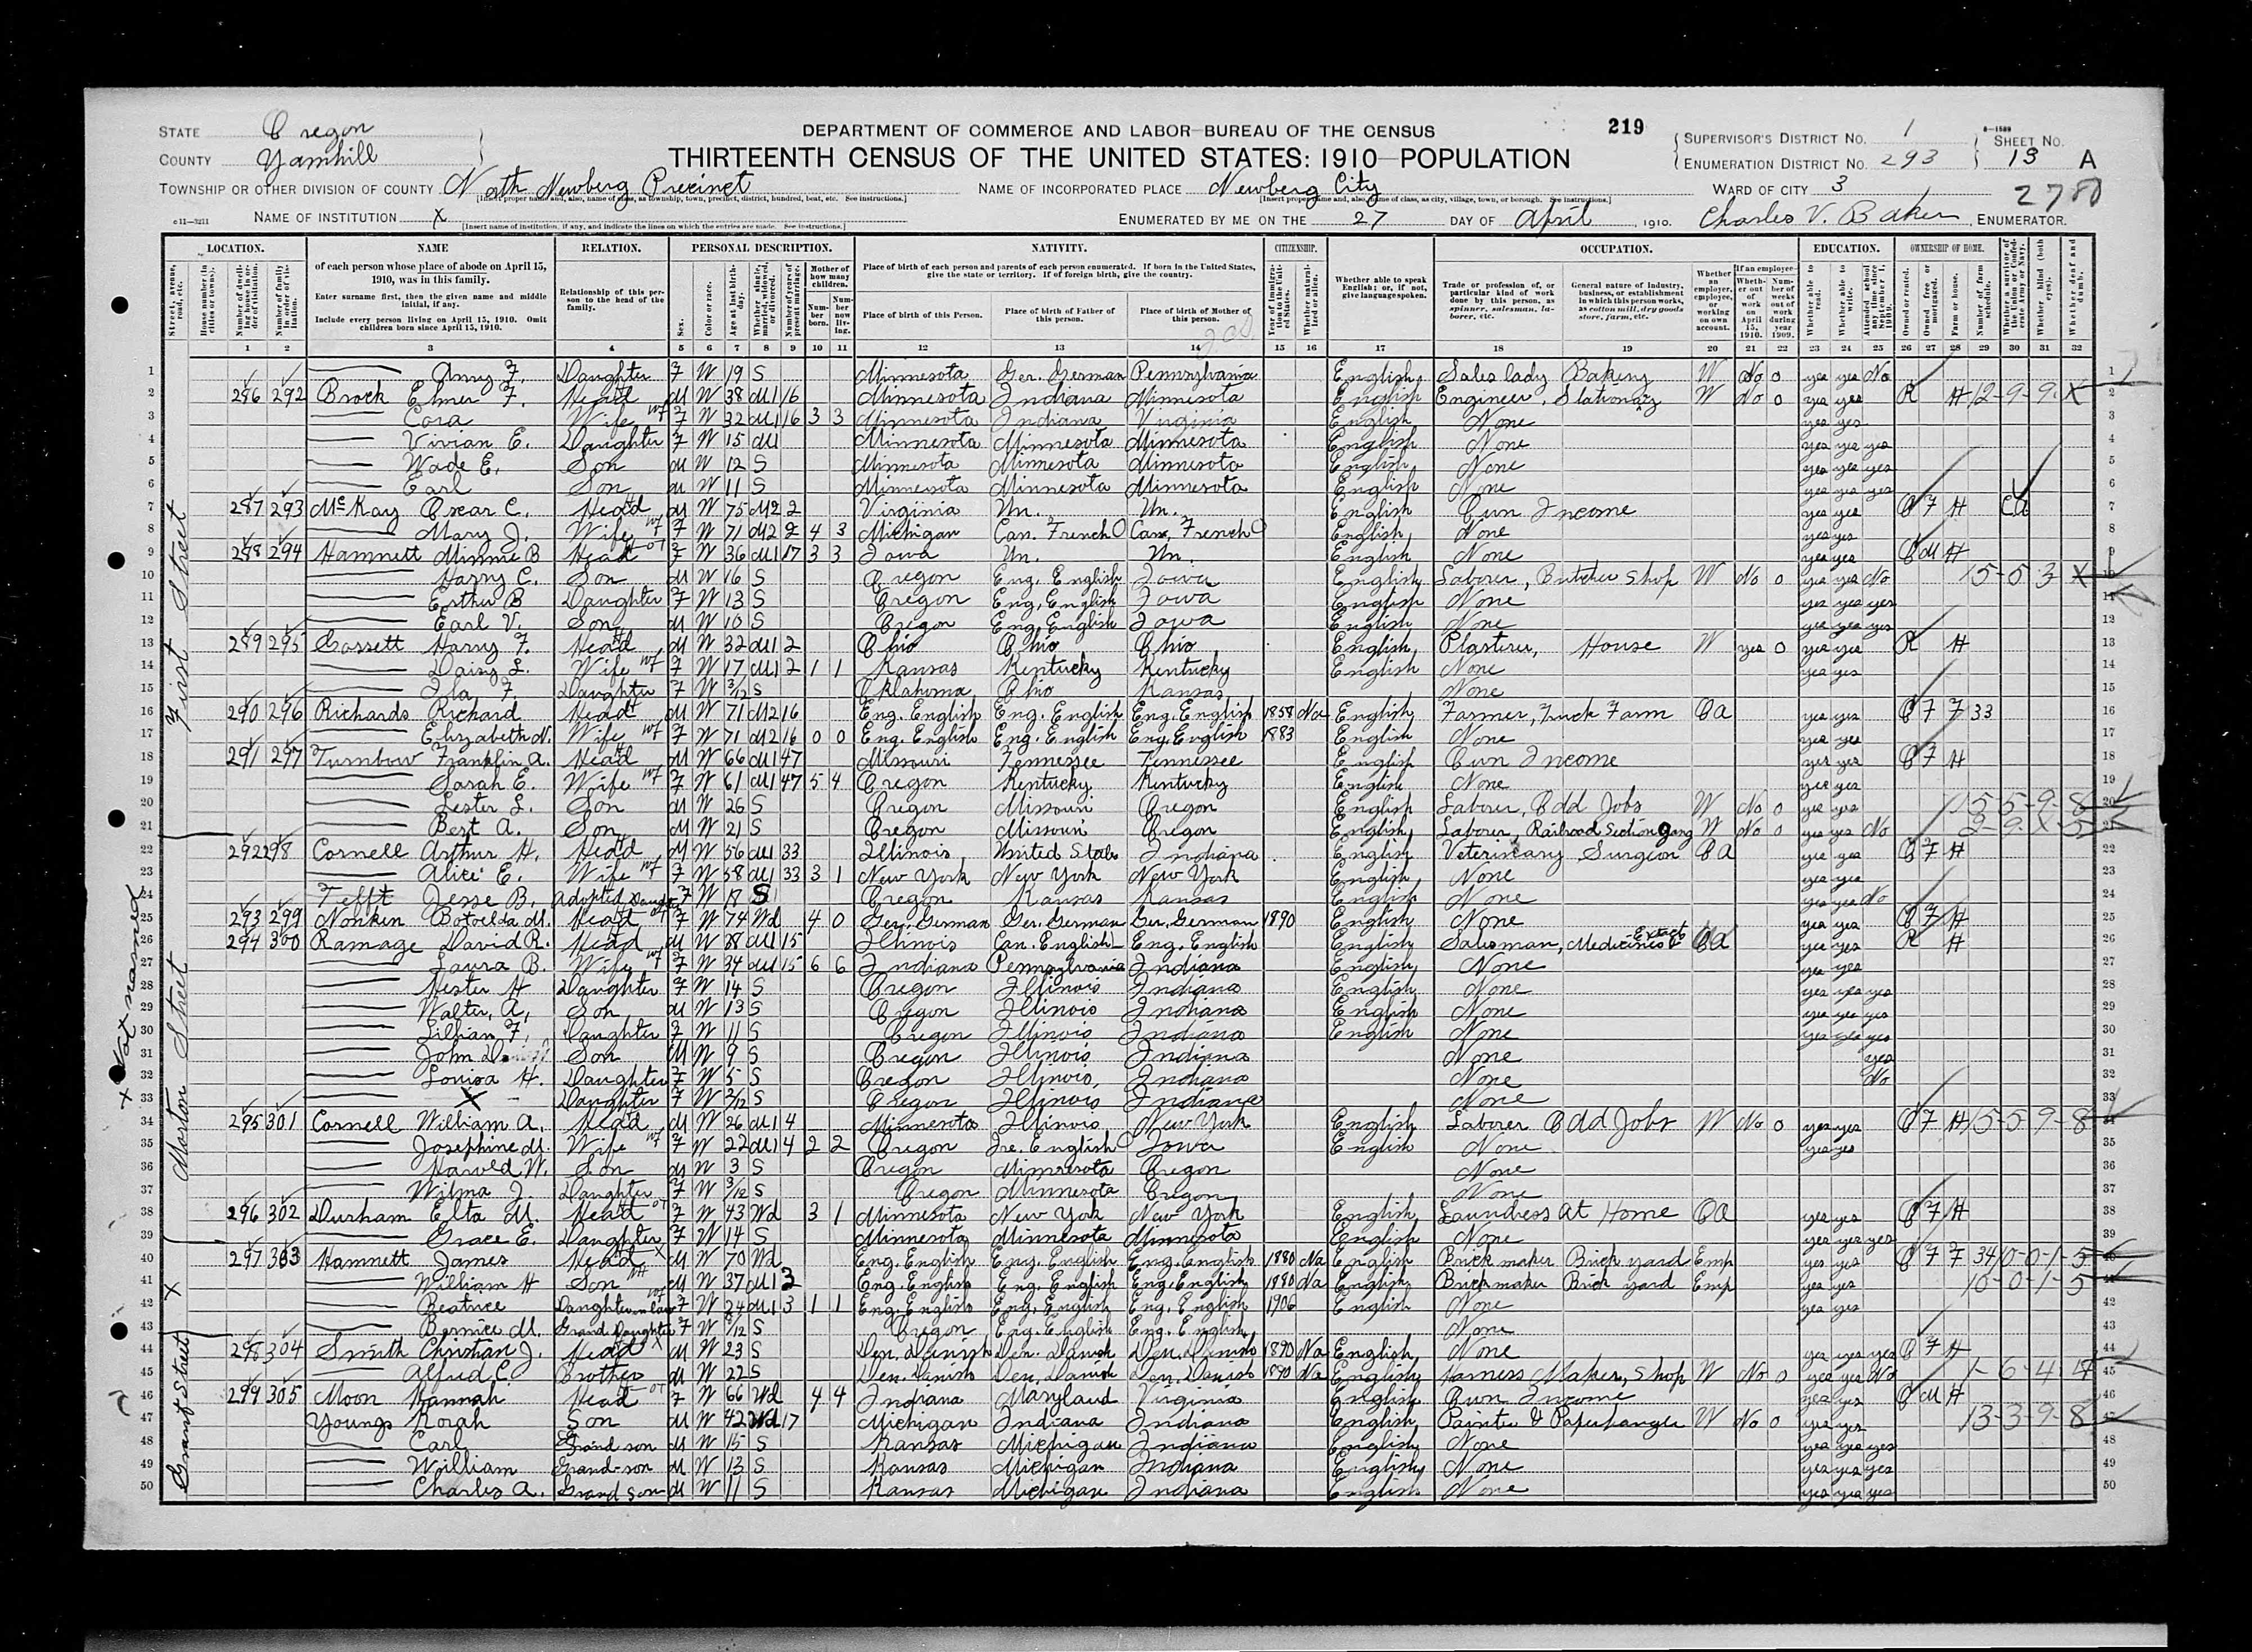 219
DEPARTMENT OF COMMERCE AND LABOR-BUREAU OF THE CENSUS
THIRTEENTH CENSUS OF THE UNITED STATES: 1910-POPULATION
STATE Oregon
COUNTY Yamhill
SUPERVISOR'S DISTRICT No. 1
ENUMERATION DISTRICT No. 293
SHEET No. 13 A
TOWNSHIP OR OTHER DIVISION OF COUNTY North Newberg Precinct
NAME OF INCORPORATED PLACE Newberg City
WARD OF CITY 3
2780
NAME OF INSTITUTION X
ENUMERATED BY ME ON THE 27 DAY OF April, 1910. Charles V. Baker, ENUMERATOR.
LOCATION. NAME RELATION. PERSONAL DESCRIPTION. NATIVITY. CITIZENSHIP. OCCUPATION. EDUCATION. OWNERSHIP OF HOME.
of each person whose place of abode on April 15, 1910, was in this family.
Enter surname first, then the given name and middle initial, if any.
Include every person living on April 15, 1910. Omit children born since April 15, 1910.
Relationship of this person to the head of the family.
Place of birth of each person and parents of each person enumerated. If born in the United States, give the state or territory. If of foreign birth, give the country.
Place of birth of this Person. Place of birth of Father of this person. Place of birth of Mother of this person.
Whether able to speak English; or, if not, give language spoken.
1 2 3 4 5 6 7 8 9 10 11 12 13 14 15 16 17 18 19 20 21 22 23 24 25 26 27 28 29 30 31 32
First Street
1 Amy F. Daughter F W 19 S Minnesota Ger. German Pennsylvania English Saleslady Bakery W No 0 yes yes No
2 286 292 Brock Elmer F. Head M W 38 M1 16 Minnesota Indiana Minnisota English Engineer, Stationary W No 0 yes yes R H 12-9-9-X
3 Cora Wife F W 32 M1 16 3 3 Minnesota Indiana Virginia English None yes yes
4 Vivian E. Daughter F W 15 M Minnesota Minnesota Minnesota English None yes yes yes
5 Wade E. Son M W 12 S Minnesota Minnesota Minnesota English None yes yes yes
6 Earl Son M W 11 S Minnesota Minnesota Minnesota English None yes yes yes
7 287 293 McKay Oscar C. Head M W 75 M2 2 Virginia Un. Un. English Own Income yes yes O F H
8 Mary J. Wife F W 71 M2 2 4 3 Michigan Can. French Can. French English None yes yes
9 288 294 Hamnett Minnie B Head F W 36 M1 17 3 3 Iowa Un. Un. English None yes yes O M H
10 Harry C. Son M W 16 S Oregon Eng. English Iowa English Laborer, Butcher Shop W No 0 yes yes No 15-5-3 X
11 Esther B Daughter F W 13 S Oregon Eng. English Iowa English None yes yes yes
12 Earl V. Son M W 10 S Oregon Eng. English Iowa English None yes yes yes
13 289 295 Cossett Harry F. Head M W 32 M1 2 Ohio Ohio Ohio English Plasterer, House W yes 0 yes yes R H
14 Daisy L. Wife F W 17 M1 2 1 1 Kansas Kentucky Kentucky English None yes yes
15 Ila F. Daughter F W 3/12 S Oklahoma Ohio Kansas None
16 290 296 Richards Richard Head M W 71 M2 16 Eng. English Eng. English Eng. English 1858 Na English Farmer, Truck Farm OA yes yes O F F 33
17 Elizabeth N. Wife F W 71 M2 16 0 0 Eng. English Eng. English Eng. English 1883 English None yes yes
18 291 297 Turnbow Franklin A. Head M W 66 M1 47 Missouri Tennessee Tennessee English Own Income yes yes O F H
19 Sarah E. Wife F W 61 M1 47 5 4 Oregon Kentucky Kentucky English None yes yes
20 Lester L. Son M W 26 S Oregon Missouri Oregon English Laborer, Odd Jobs W No 0 yes yes 15-5-9-8
21 Bert A. Son M W 21 S Oregon Missouri Oregon English Laborer, Railroad Section gang W No 0 yes yes No
Morton Street
22 292 298 Cornell Arthur H. Head M W 56 M1 33 Illinois United States Indiana English Veterinary Surgeon OA yes yes O F H
23 Alice E. Wife F W 58 M1 33 3 1 New York New York New York English None yes yes
24 Tefft Jesse B. Adopted Daughter F W 18 S Oregon Kansas Kansas English None yes yes No
25 293 299 Head F W 74 Wd 4 0 Ger. German Ger. German Ger. German 1890 English None yes yes O F H
26 294 300 Ramage David R. Head M W 38 M1 15 Illinois Can. English Eng. English English Salesman, Medicines & Extract OA yes yes R H
27 Laura B. Wife F W 34 M1 15 6 6 Indiana Pennsylvania Indiana English None yes yes
28 Hester H Daughter F W 14 S Oregon Illinois Indiana English None yes yes yes
29 Walter, A, Son M W 13 S Oregon Illinois Indiana English None yes yes yes
30 Lillian F. Daughter F W 11 S Oregon Illinois Indiana English None yes yes yes
31 John Son M W 9 S Oregon Illinois Indiana None yes
32 Louisa H. Daughter F W 5 S Oregon Illinois, Indiana None No
33 X Daughter F W 2/12 S Oregon Illinois Indiana None
x Not named
34 295 301 Cornell William A. Head M W 26 M1 4 Minnesota Illinois New York English Laborer Odd Jobs W No 0 yes yes O F H 15-5-9-8
35 Josephine M. Wife F W 22 M1 4 2 2 Oregon Ire. English Iowa English None yes yes
36 Harold W. Son M W 3 S Oregon Minnesota Oregon None
37 Wilma J. Daughter F W 3/12 S Oregon Minnesota Oregon None
38 296 302 Durham Elta M. Head F W 43 Wd 3 1 Minnesota New York New York English Laundress At Home OA yes yes O F H
39 Grace E. Daughter F W 14 S Minnesota Minnesota Minnesota English None yes yes yes
40 297 303 Hamnett James Head M W 70 Wd Eng. English Eng. English Eng. English 1880 Na English Brick maker Brick yard Emp yes yes O F F 34 0-0-1-5
41 William H Son M W 37 M1 3 Eng. English Eng. English Eng. English 1880 Na English Brickmaker Brick yard Emp yes yes 10-0-1-5
42 Beatrice Daughter in law F W 24 M1 3 1 1 Eng. English Eng. English Eng. English 1906 English None yes yes
43 Bernice M. Grand Daughter F W S Oregon Eng. English Eng. English None
Grant Street
44 298 304 Smith Christian J. Head M W 23 S Den. Danish Den. Danish Den. Danish 1890 Na English None yes yes yes O F H
45 Alfred C. Brother M W 22 S Den. Danish Den. Danish Den. Danish 1890 Na English Harness Maker, Shop W No 0 yes yes No
46 299 305 Moon Hannah Head F W 66 Wd 4 4 Indiana Maryland Virginia English Own Income yes yes O M H
47 Youngs Korah Son M W 42 Wd 17 Michigan Indiana Indiana English Painter & Paperhanger W No 0 yes yes 13-3-9-8
48 Carl Grand son M W 15 S Kansas Michigan Indiana English None yes yes yes
49 William Grand-son M W 13 S Kansas Michigan Indiana English None yes yes yes
50 Charles A. Grand son M W 11 S Kansas Michigan Indiana English None yes yes yes